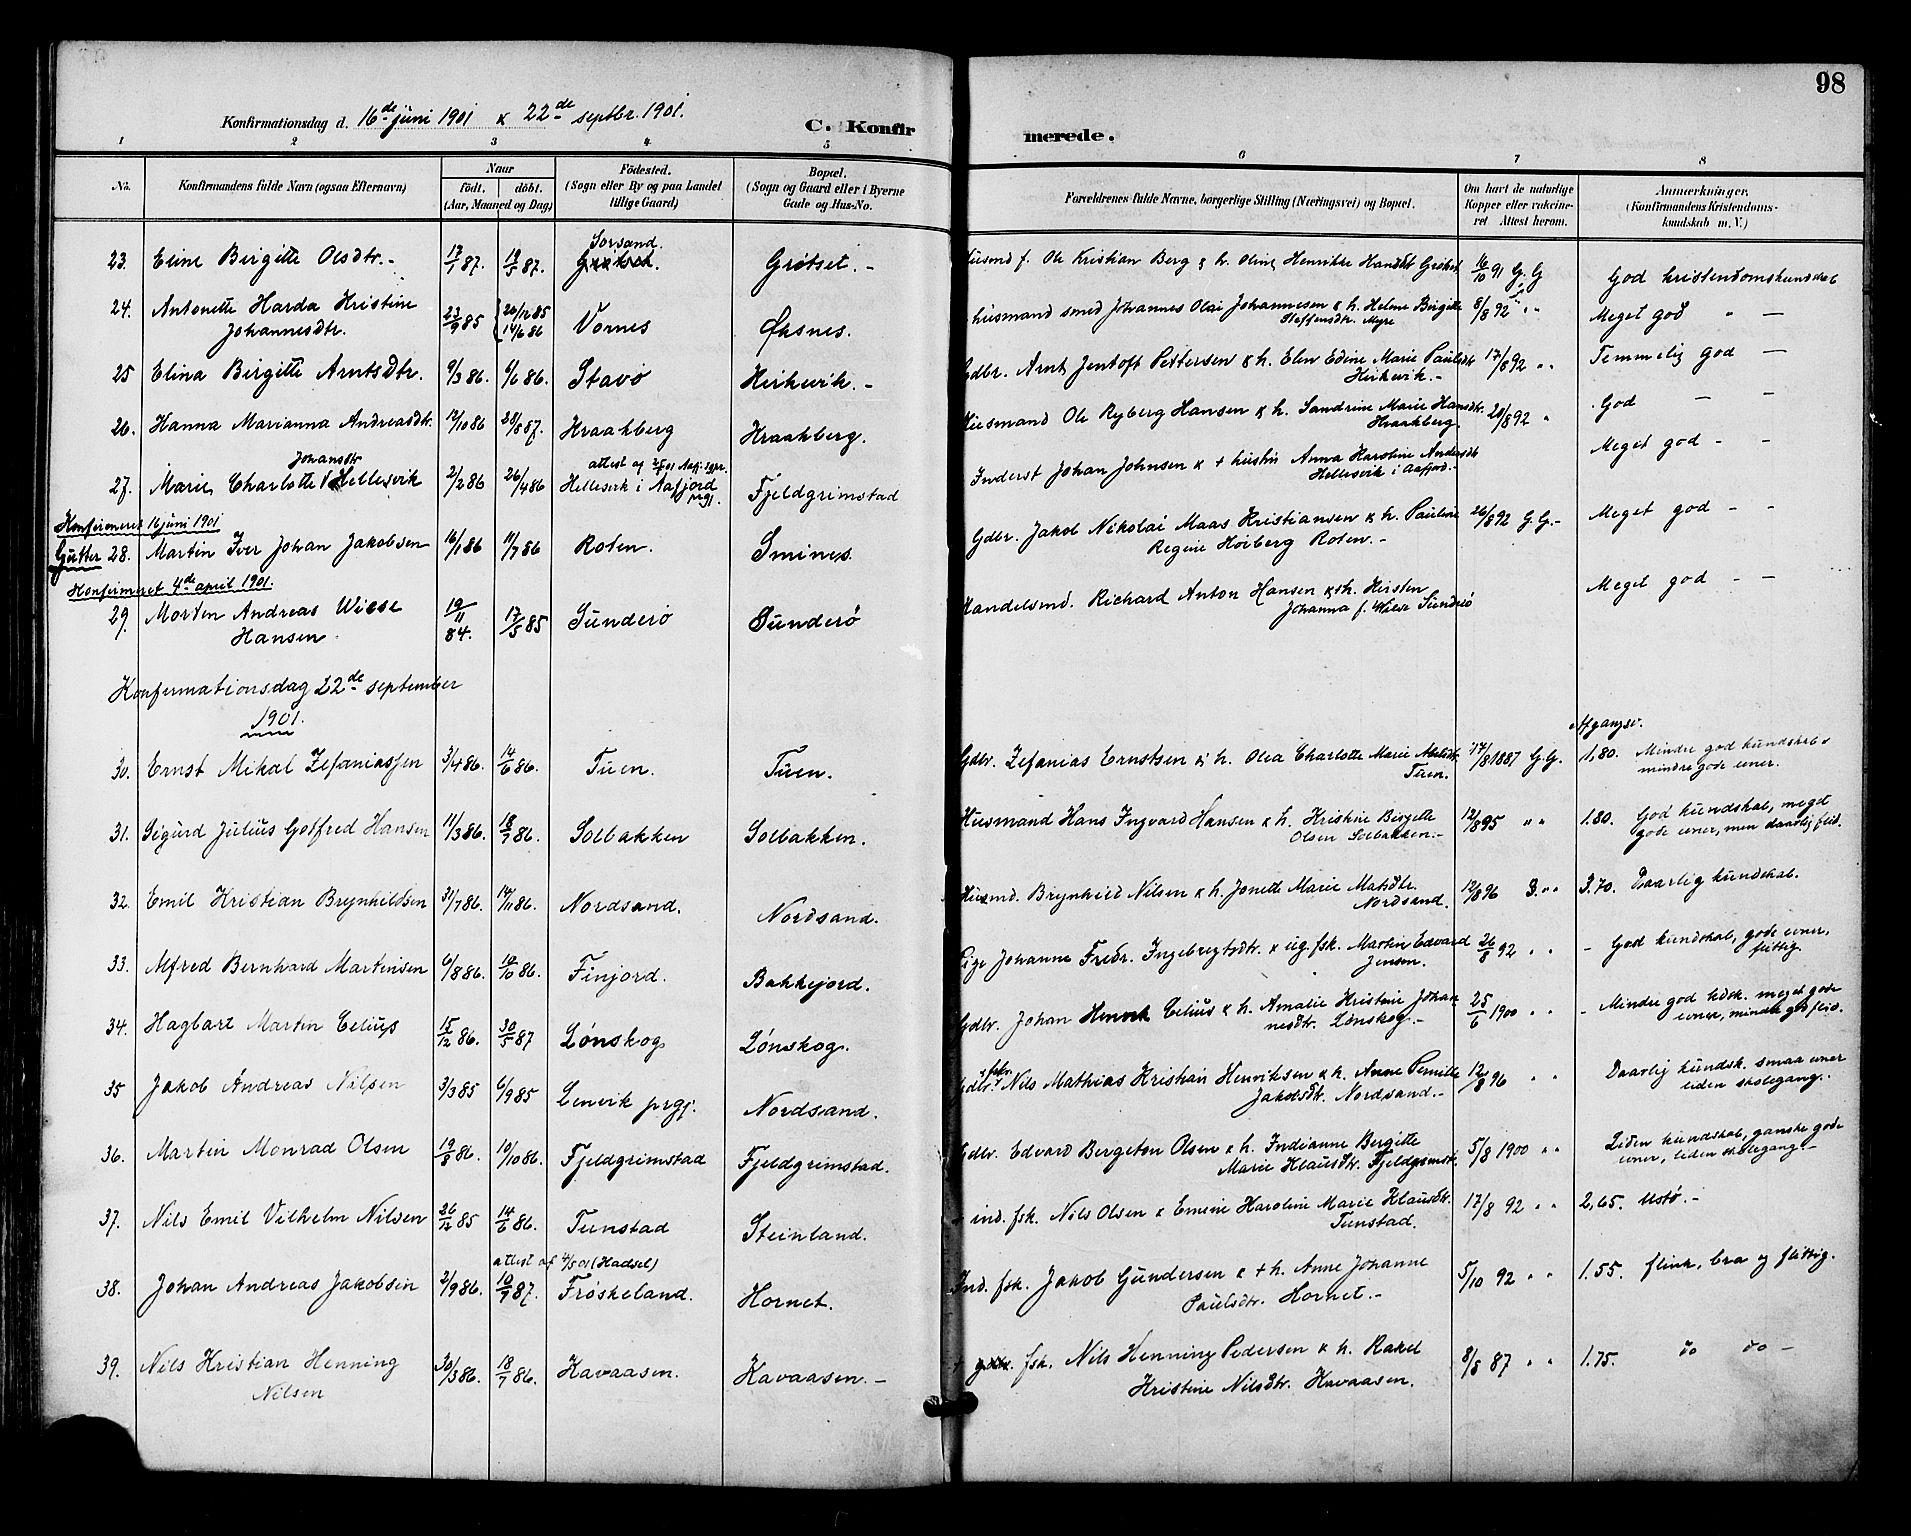 98
Konfirmationsdag d. 16de juni 1901 & 22de septbr. 1901.
C. Konfirmerede.
1 2 3 4 5 6 7 8
No. Konfirmandens fulde Navn (ogsaa Efternavn) Naar født. døbt. (Aar, Maaned og Dag) Fødested. (Sogn eller By og paa Landet tillige Gaard) Bopæl. (Sogn og Gaard eller i Byerne Gade og Hus-No. Forældrenes fulde Navne, borgerlige Stilling (Næringsvei) og Bopæl. Om havt de naturlige Kopper eller vakcineret Attest herom. Anmærkninger. (Konfirmandens Kristendomskundskab m. V.)
23. Eline Birgitte Olsdtr. 17/1 87. 19/5 87. Sorsand. Grøtset. Husmd f. Ole Kristian Berg & h. Oline Henrikke Hansdt Grøtset 16/10 91 G. G God kristendomskundskab
24. Antonette Harda Kristine 23/9 85 26/12 85 Vornes Øksnes. husmand smed Johannes Olai Johannesen & h. Helene Birgitte 8/8 92 " " Meget god " —
Johannesdtr. 14/6 86 Steffensdtr. Myre
25 Elina Birgitte Arntsdtr. 9/3 86. 6/6 86. Stavø Kirkevik. - Gdbr. Arnt Jentoft Pettersen & h. Elen Edine Marie Paulsdt 17/8 92 " " Temmelig god —
Kirkevik. -
26. Hanna Marianna Andreasdtr. 12/10 86 28/8 87. Kraakberg Kraakberg. Husmand Ole Ryberg Hansen & h. Sandrine Marie Hansdtr. 20/8 92 " God — —
Kraakberg.
Johansdtr attest af 2/5 01 Aafj. sgpr.
27. Marie Charlotte Hellesvik 2/2 86 26/4 86 Hellesvik i Aafjord prgj. Fjeldgrimstad Inderst Johan Johnsen & + hustru Anna Karoline Andersdt Meget god - -
Hellesvik i Aafjord. -
Konfirmeret 16 juni 1901
Gutter 28. Martin Iver Johan Jakobsen 16/1 86 11/7 86 Roten. Smines. Gdbr. Jakob Nikolai Maas Kristiansen & h. Pauline 26/8 92 G. G. - Meget god - -
Regine Hoiberg Roten. -
Konfirmeret 4de april 1901.
29. Morten Andreas Wiese 19/11 84. 17/5 85 Sunderø Sunderø Handelsmd. Richard Anton Hansen & h. Kirsten Meget god - -
Hansen Johanna f. Wiese Sunderø
Konfirmationsdag 22de september
1901.
Afgangsv.
30. Ernst Mikal Zefaniassen 3/4 86. 14/6 86. Tuen. Tuen. Gdbr. Zefanias Ernstsen & h. Olea Charlotte Marie Abelsdtr. 17/8 1887 G. G. 1,80. Mindre god kundskab &
Tuen. mindre gode evner.
31. Sigurd Julius Gotfred Hansen 11/3 86. 18/7 86. Solbakken Solbakken. Husmand Hans Ingvard Hansen & h. Kristine Bergitte 12/8 95 " " 1.80. God kundskab, meget
Olsen Solbakken. - gode evner, men daarlig flid.
32. Emil Kristian Brynhildsen 31/7 86. 14/11 86. Nordsand. Nordsand. Husmd. Brynhild Nilsen & h. Jonette Marie Matsdtr. 12/8 96 " " 3.70. Daarlig kundskab.
Nordsand.
33. Alfred Bernhard Martinsen 6/8 86. 10/10 86. Finjord. Bakkejord. Pige Johanne Fredr. Ingebregtsdtr. & ug. fsk. Martin Edvard 26/8 92 " " - God kundskab, gode evner,
Jensen. flittig.
34. Hagbart Martin Celius 15/12 86. 30/5 87 Lønskog Lønskog. Gdbr. Johan Henrik Celius & h. Amalie Kristine Johan 25/6 1900 " " - Mindre god kdsk. meget gode
nesdtr. Lønskog - evner, mindre god flid.
35 Jakob Andreas Nilsen 3/3 85 6/9 85 Lenvik prgj. Nordsand. Gdbr. Nils Mathias Kristian Henriksen & h. Anne Pernille 12/8 96 " " Daarlig kundsk. smaa evner
Jakobsdtr. Nordsand. - liden skolegang. -
36. Martin Monrad Olsen 19/8 86. 10/10 86. Fjeldgrimstad Fjeldgrimstad. Gdbr. Edvard Bergeton Olsen & h. Indianne Bergitte 5/8 1900 " " Liden kundskab, ganske gode
Marie Klausdtr. Fjeldgrimst. evner, liden skolegang. -
37. Nils Emil Vilhelm Nilsen 26/12 85 14/6 86. Tunstad Steinland. + ind. fsk. Nils Olsen & Emine Karoline Marie Klausdtr. 17/8 92 " " 2,65. Ustø. -
Tunstad.
attest af 4/5 01 (Hadsel)
38. Johan Andreas Jakobsen 2/9 86. 10/7 87. Frøskeland. Hornet. Ind. fsk. Jakob Gundersen & + h. Anne Johanne 5/10 92 " " 1.55. flink, bra og flittig.
Paulsdtr. Hornet. -
39. Nils Kristian Henning 30/3 86. 18/7 86. Kavaasen. Kavaasen. - + fsk. Nils Henning Pedersen & h. Rakel 8/8 87 " " 1.75. do do -
Nilsen Kristine Nilsdtr. Kavaasen.